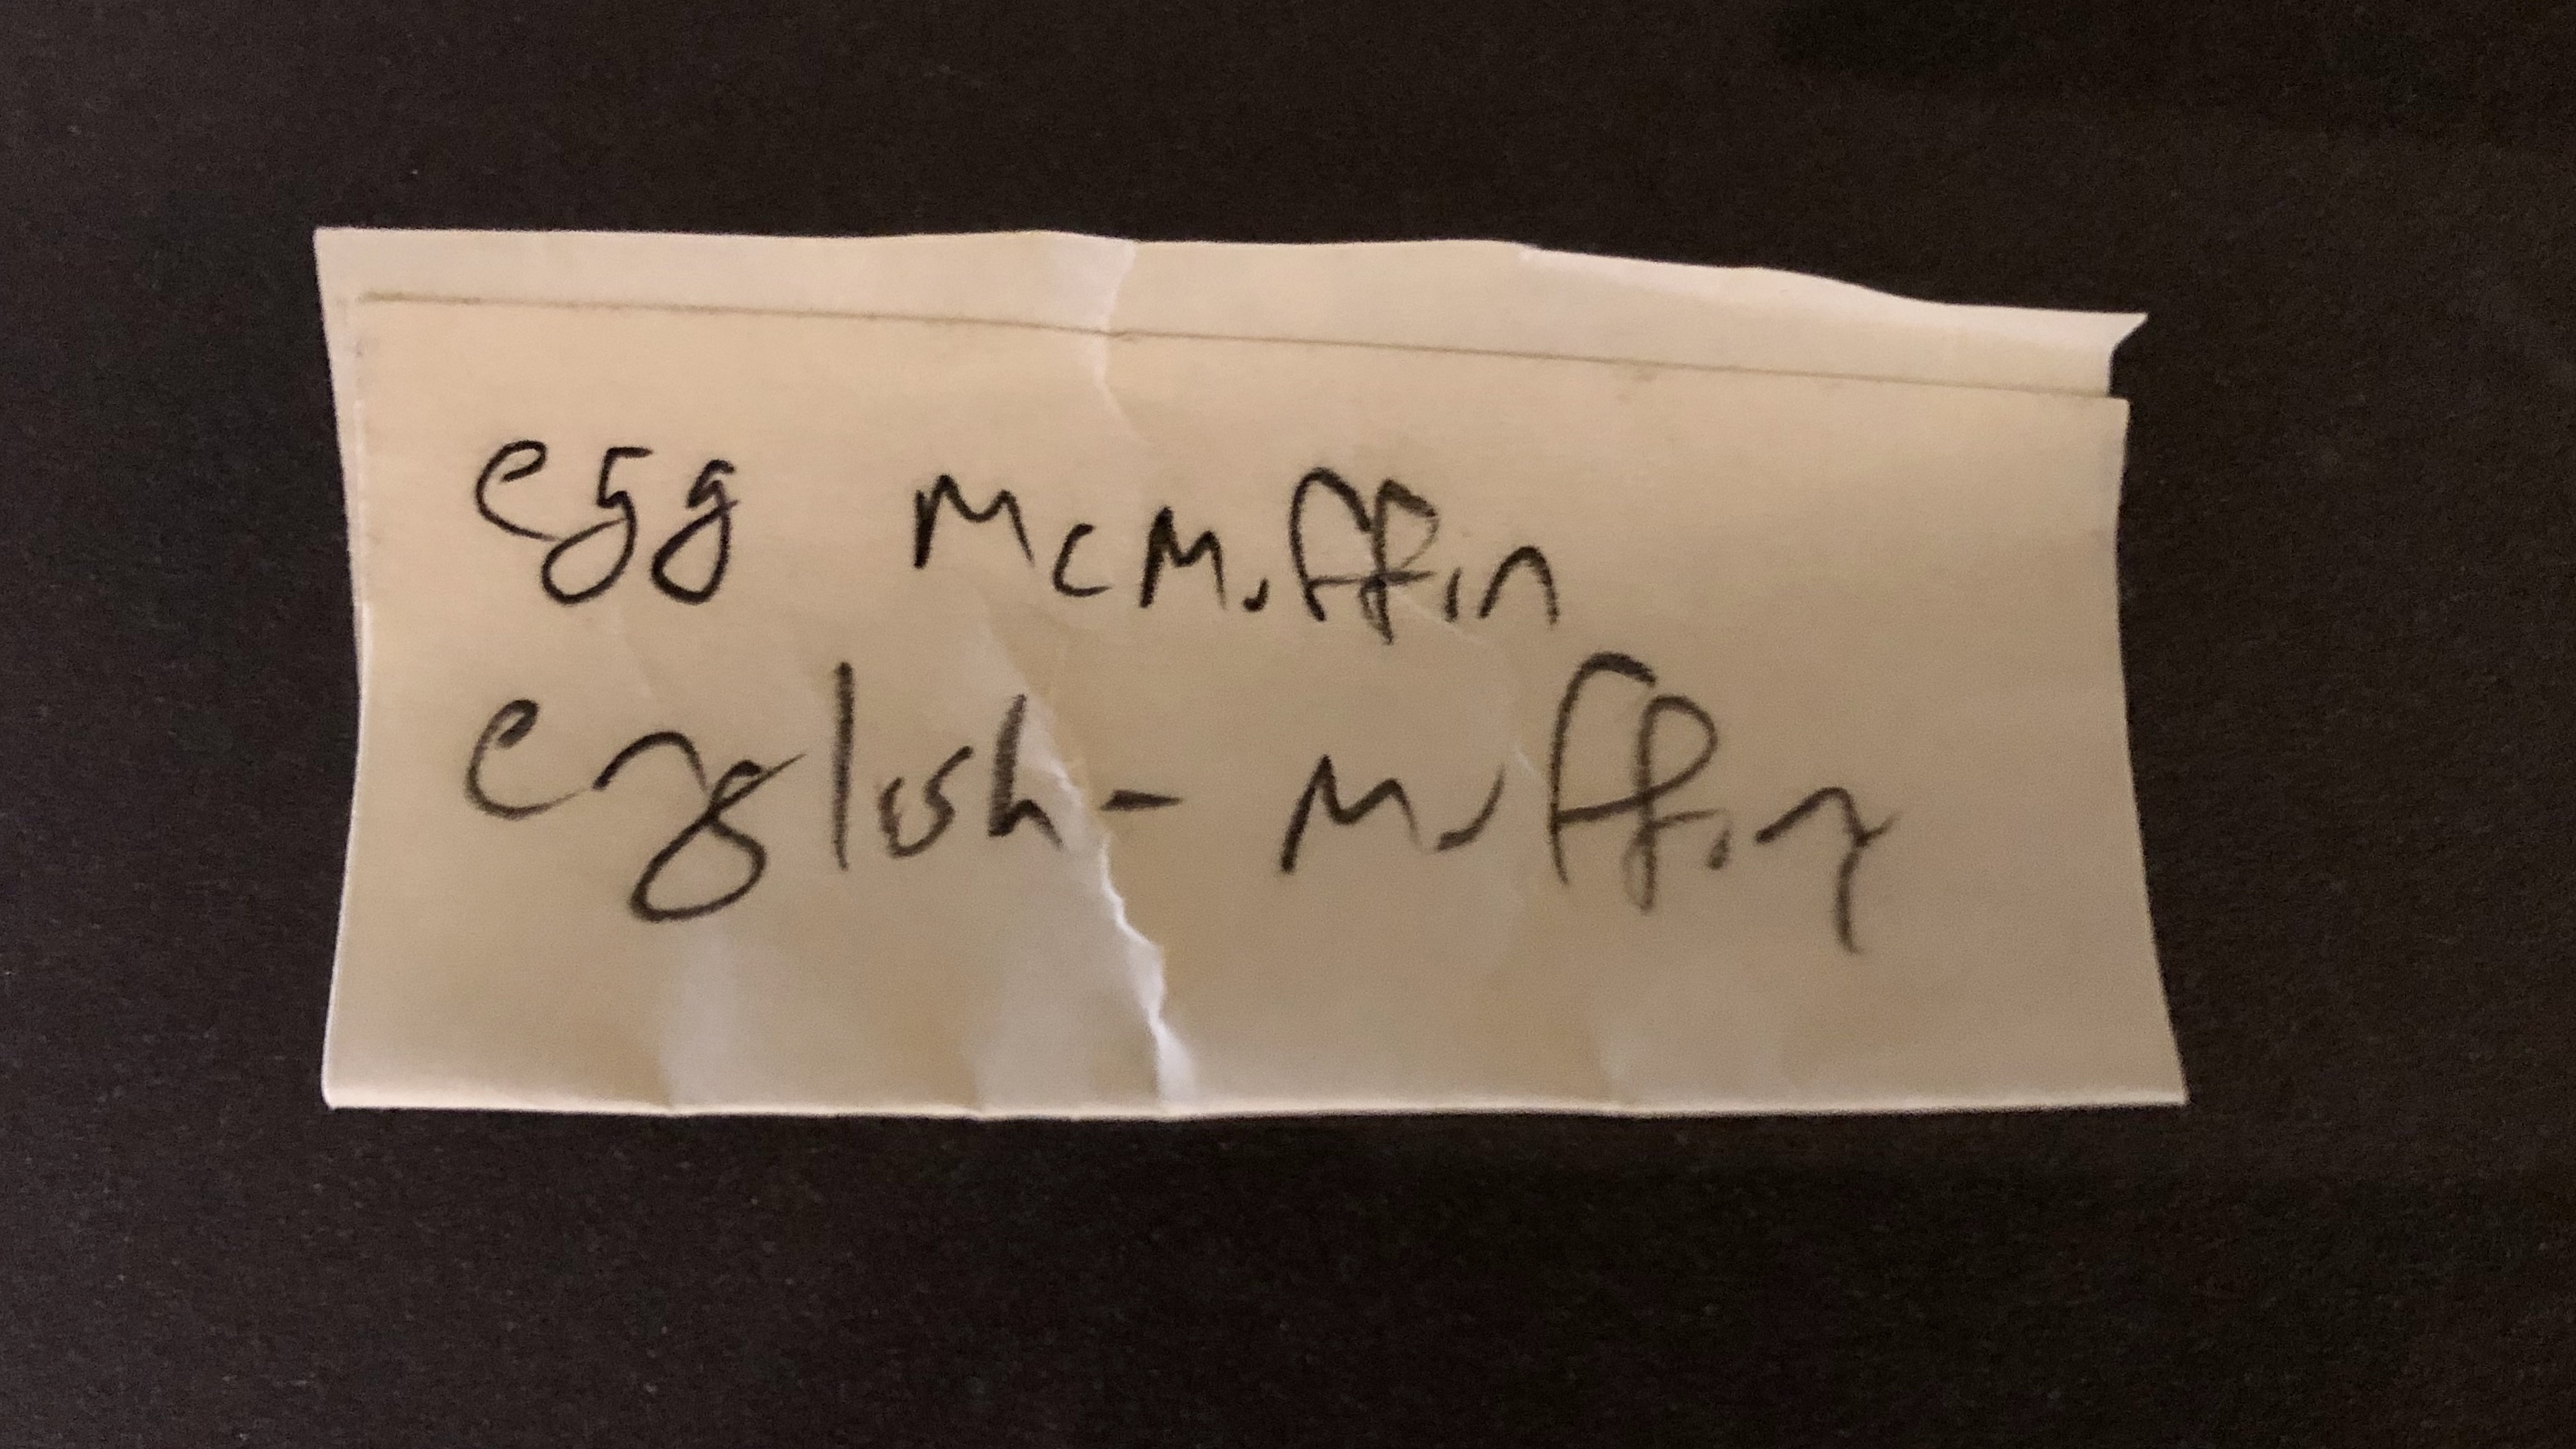 egg McMuffin
english - Muffin